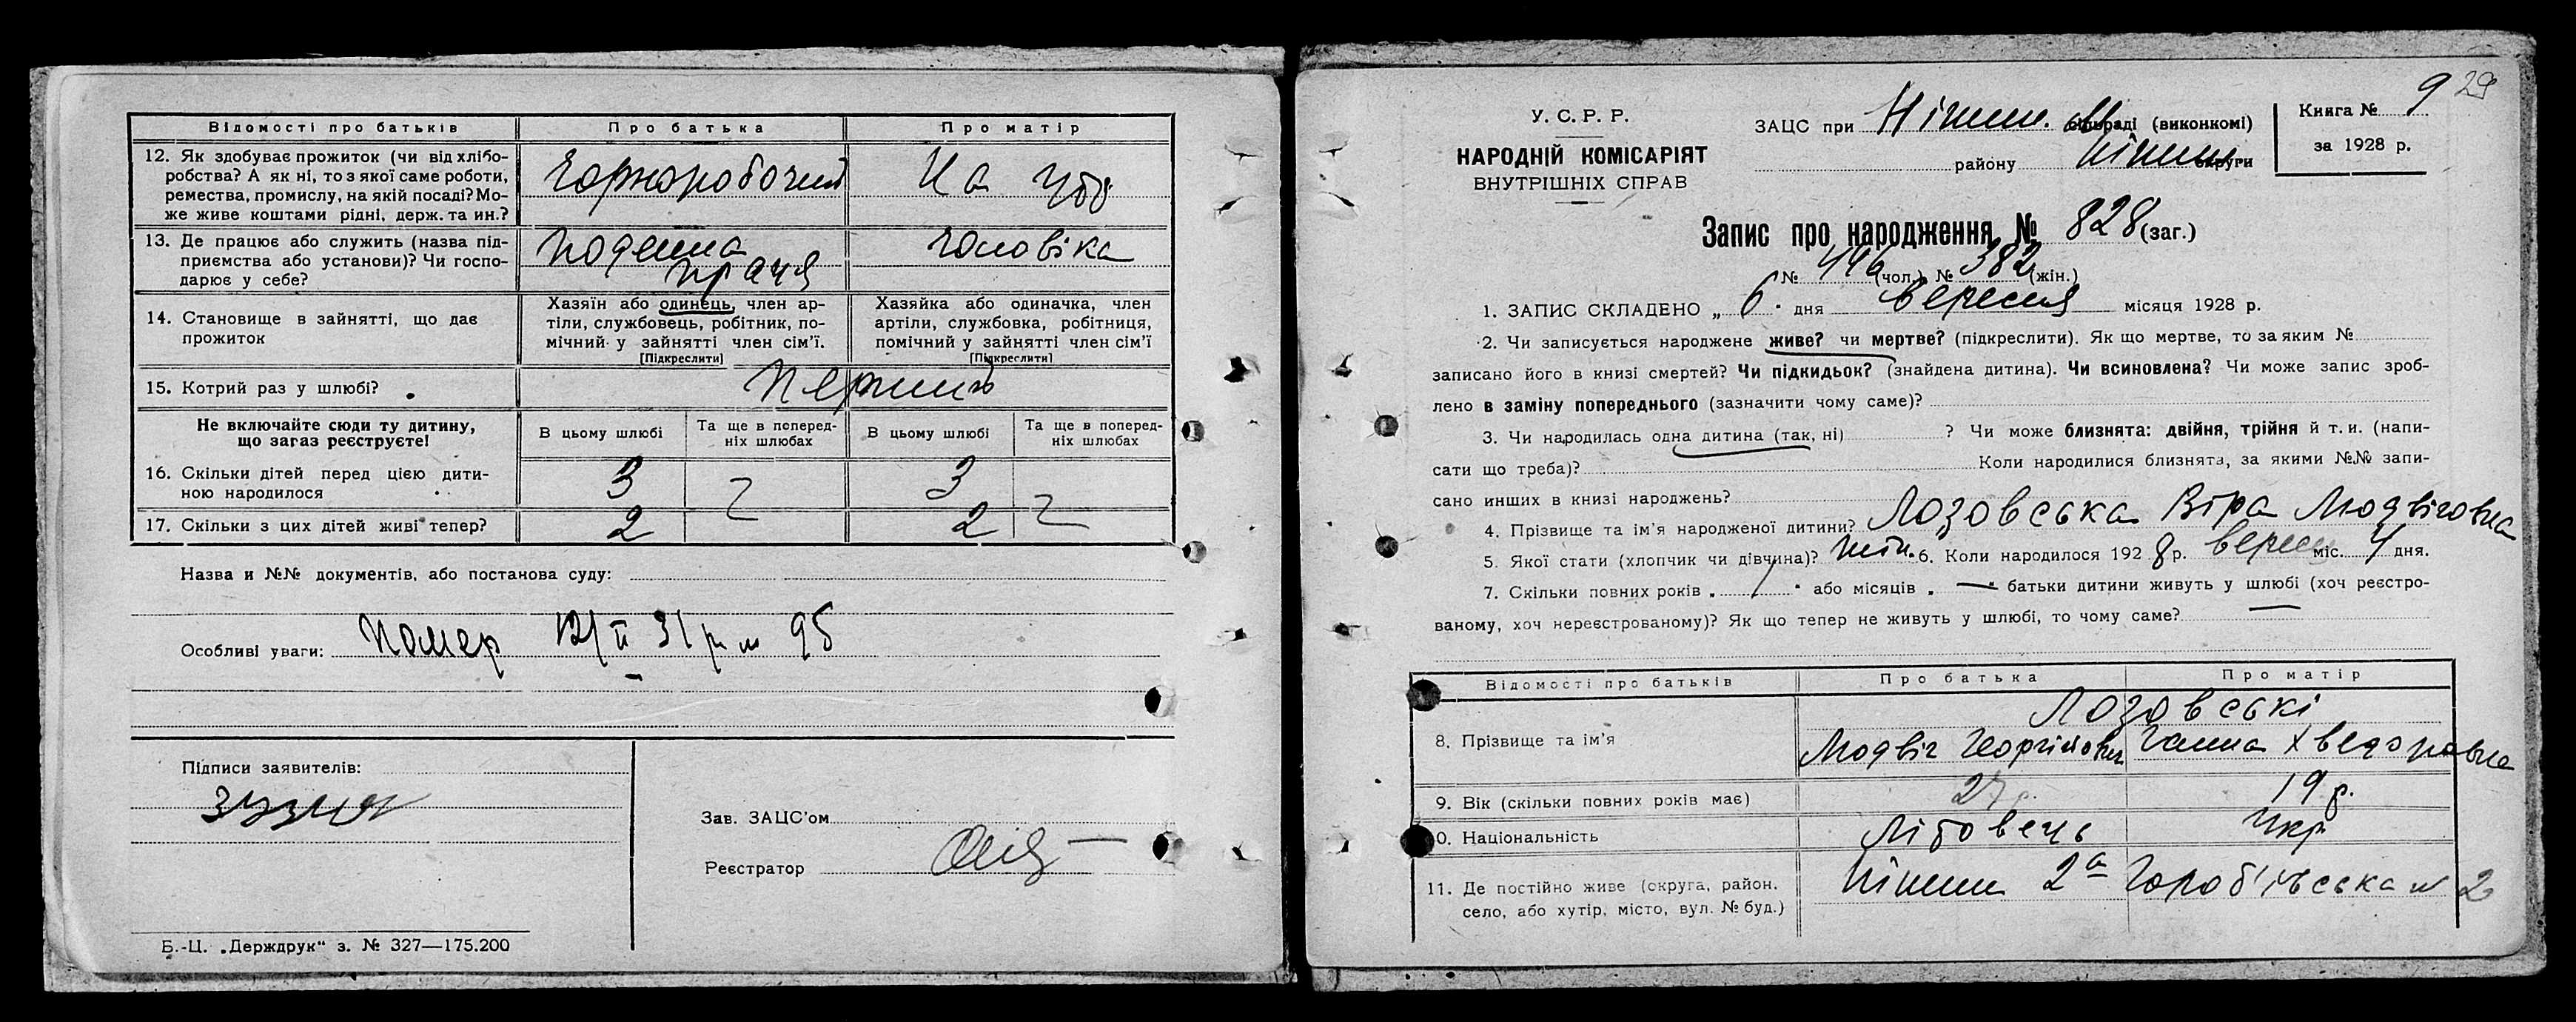 Відомості про батьків Про батька Про матір
12. Як здобуває прожиток (чи від хлібо-
робства? А як ні, то з якої саме роботи,
ремества, промислу, на якій посаді? Мо-
же живе коштами рідні, держ. та ин.?
Чорноробочий На утр
13. Де працює або служить (назва під-
приємства або установи)? Чи госпо-
дарює у себе?
Поденна чоловіка
праця
14. Становище в зайнятті, що дає
прожиток
Хазяїн або одинець, член ар-
тіли, службовець, робітник, по-
мічний у зайнятті член сім'ї.
[Підкреслити]
Хазяйка або одиначка, член
артіли, службовка, робітниця,
помічний у зайнятті член сім'ї
[Підкреслити]
15. Котрий раз у шлюбі? Перший
Не включайте сюди ту дитину,
що загаз реєструєте!
В цьому шлюбі Та ще в поперед-
ніх шлюбах В цьому шлюбі Та ще в поперед-
ніх шлюбах
16. Скільки дітей перед цією дити-
ною народилося 3 3
17. Скільки з цих дітей живі тепер? 2 2
Назва и №№ документів, або постанова суду:
Особливі уваги: Помер 12/II 31 р № 95
Підписи заявителів:
Зав. ЗАЦС'ом
Реєстратор
Б.-Ц. „Держдрук" з. № 327—175.200
29
У. С. Р. Р.
НАРОДНІЙ КОМІСАРІЯТ
ВНУТРІШНІХ СПРАВ
ЗАЦС при Ніжин. сільраді (виконкомі)
району Ніжин. округи
Книга № 9
за 1928 р.
Запис про народження № 828 (заг.)
№ 446 (чол.) № 382 (жін.)
1. ЗАПИС СКЛАДЕНО „ 6 " дня вересня місяця 1928 р.
2. Чи записується народжене живе? чи мертве? (підкреслити). Як що мертве, то за яким №
записано його в книзі смертей? Чи підкидьок? (знайдена дитина). Чи всиновлена? Чи може запис зроб-
лено в заміну попереднього (зазначити чому саме)?
3. Чи народилась одна дитина (так, ні) ? Чи може близнята: двійня, трійня й т. и. (напи-
сати що треба)? Коли народилися близнята, за якими №№ запи-
сано инших в книзі народжень?
4. Прізвище та ім'я народженої дитини? Лозовська Віра Людвіговна
5. Якої стати (хлопчик чи дівчина)? жін. 6. Коли народилося 1928 р. вересн міс. 4 дня.
7. Скільки повних років „ / " або місяців „ — " батьки дитини живуть у шлюбі (хоч реєстро-
ваному, хоч нереєстрованому)? Як що тепер не живуть у шлюбі, то чому саме? —
Відомості про батьків Про батька Про матір
Лозовські
8. Прізвище та ім'я Людвіг Георгійович Ганна Хведоровна
9. Вік (скільки повних років має) 27 р. 19 р.
0. Національність Літовець Укр
11. Де постійно живе (округа, район,
село, або хутір, місто, вул. № буд.)
Ніжин 2а Гороб'ївська № 2